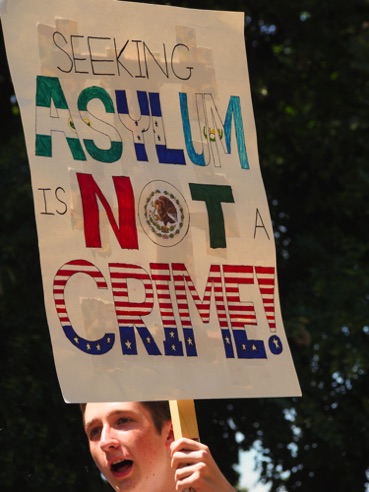 SEEKING
ASYLUM
IS NOT A
CRIME!